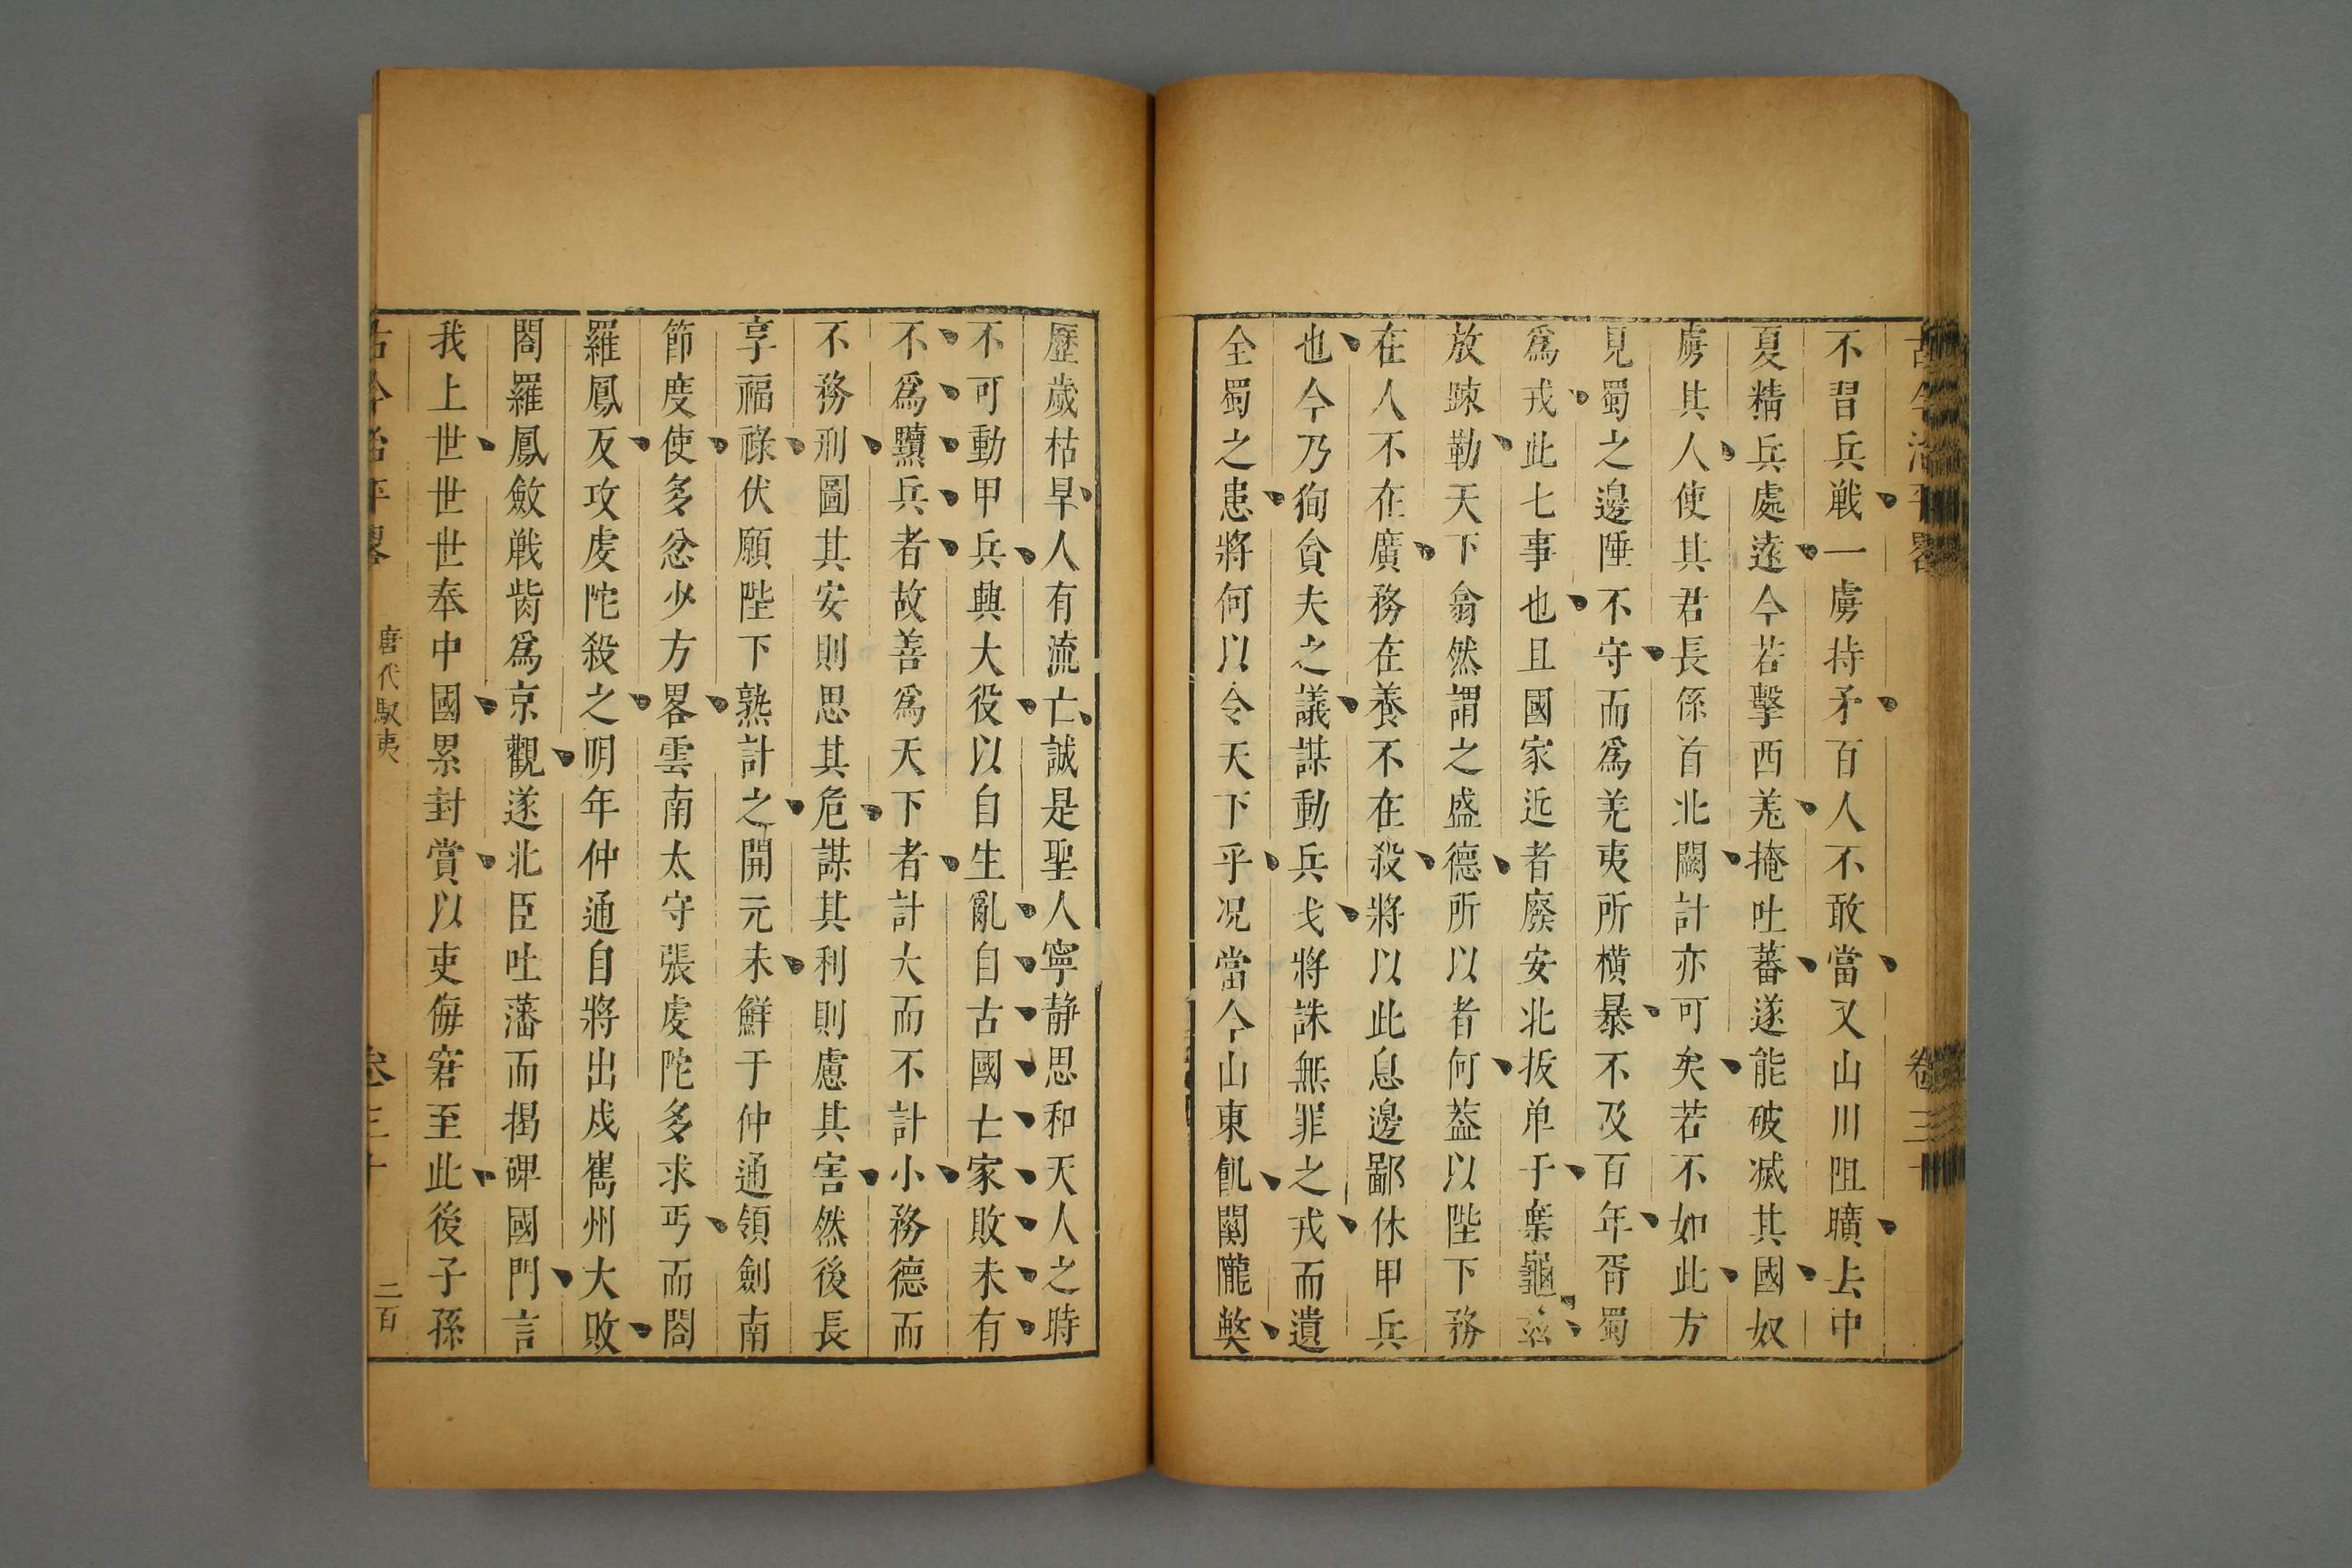 古今治平畧 卷三十
不習兵戦一虜持矛百人不敢當又山川阻曠去中
夏精兵處遠今若擊西羌掩吐蕃遂能破滅其國奴
虜其人使其君長係首北闕計亦可矣若不如此方
見蜀之邊陲不守而爲羌夷所横暴不及百年胥蜀
爲戎此七事也且國家近者廢安北抜单于棄龜玆
放踈勒天下翕然謂之盛德所以者何葢以陛下務
在人不在廣務在養不在殺將以此息邊鄙休甲兵
也今乃徇貟夫之議謀動兵戈將誅無罪之戎而遺
全蜀之患將何以令天下乎况當今山東飢關隴獘
歷歲枯旱人有流亡誠是聖人寧静思和天人之時
不可動甲兵興大役以自生亂自古國亡家敗未有
不爲黷兵者故善爲天下者計大而不計小務德而
不務刑圖其安則思其危謀其利則慮其害然後長
享福祿伏願陛下熟計之開元末鮮于仲通領劍南
節度使多忿少方畧雲南太守張虔陀多求丐而閤
羅鳳反攻虔陀殺之明年仲通自將出戍雟州大敗
閤羅鳳斂戦胔爲京觀遂北臣吐藩而揭碑國門言
我上世世世奉中國累封賞以吏侮窘至此後子孫
古今治平畧 唐代馭夷 卷三十 二百